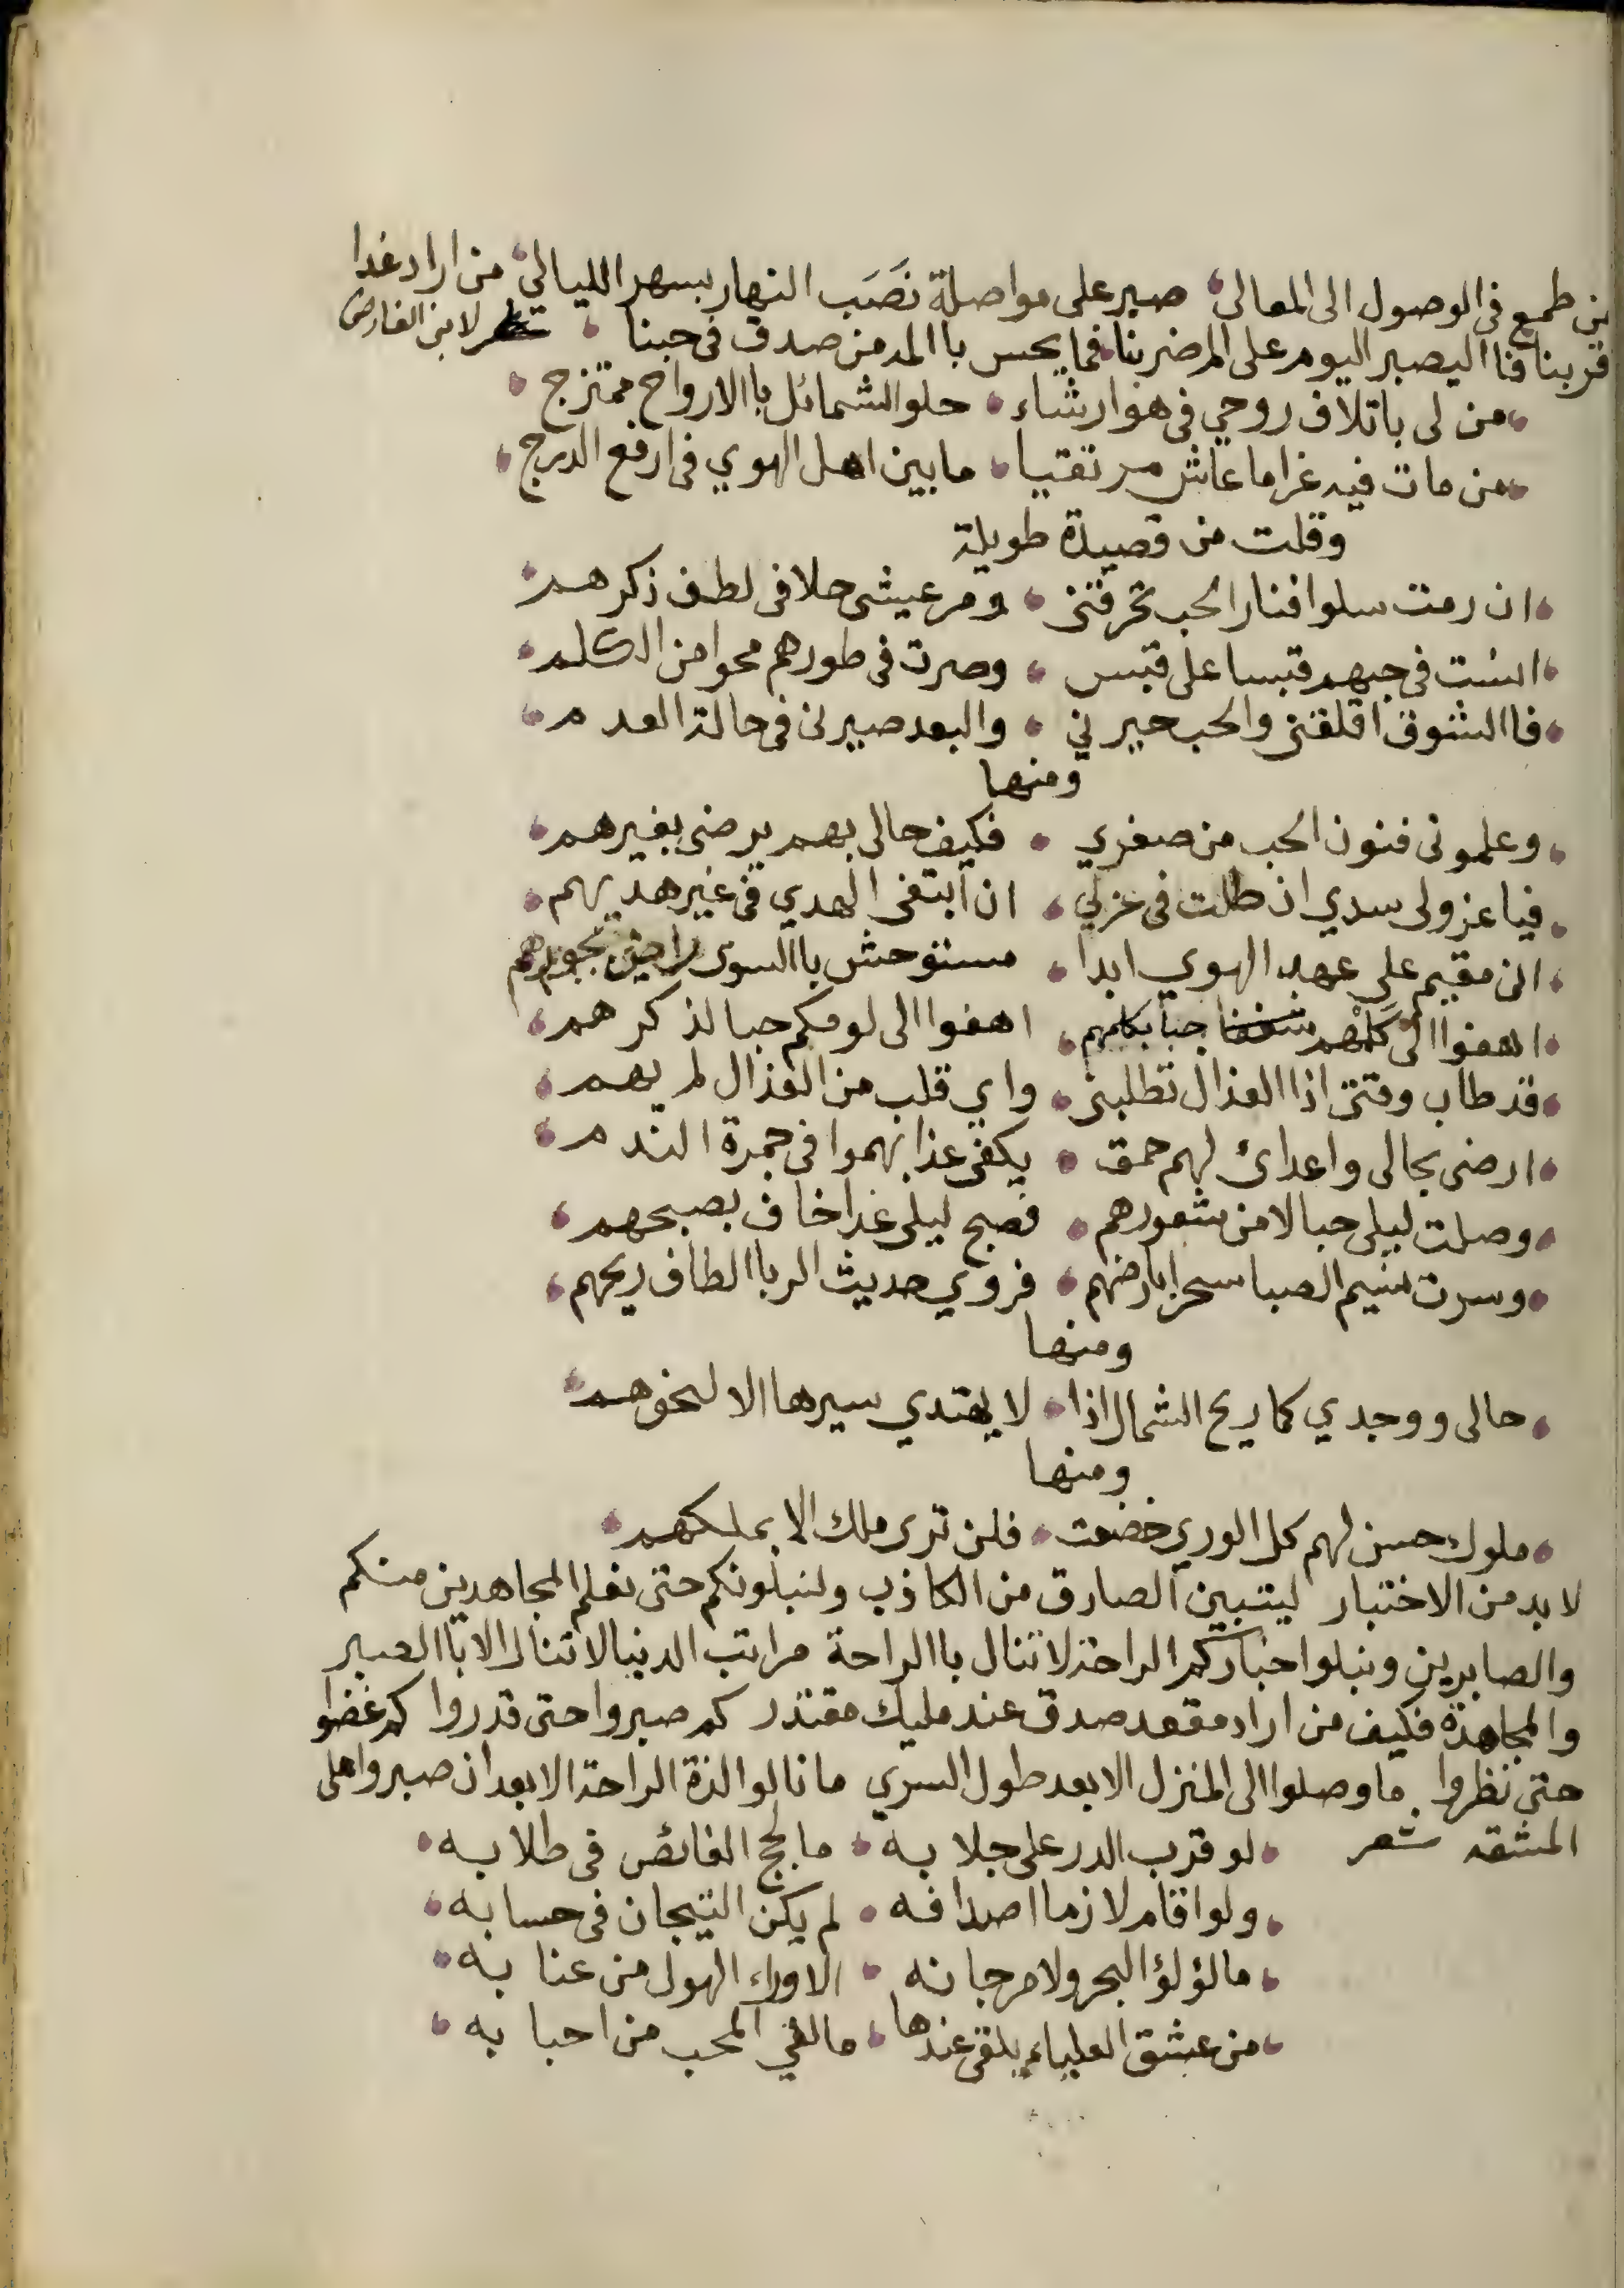 من طمع فى الوصول الى المعالى، صبر على مواصلة نَصَب النهار بسهر الليالى، من اراد غدا
قربنا فا اليصبر اليوم على الم ضربنا، فما يحس با المد من صدق فى حبنا، شعر لابن الفارض
، من لى باتلاف روحي فى هوا رشاء، حلو الشمائل با الارواح ممتزج،
، من مات فيه غراما عاش مرتقيا، مابين اهل الهوي فى ارفع الدرج،
وقلت من قصيدة طويلة
، ان رمت سلوا فنار الحب تحرقنى، ومر عيشى حلا فى لطف ذكرهم،
، انست فى حبهم قبسا على قبس، وصرت فى طورهم محوا من الكلم،
، فا الشوق اقلقنى والحب حيرني، والبعد صيرنى فى حالة العدم،
ومنها
، وعلمونى فنون الحب من صغري، فكيف حالى بهم يرضى بغيرهم،
، فيا عزولى سدي ان طلت فى عزلي، ان ابتغى الهدي فى غير هديهم،
، انى مقيم على عهد الهوي ابدا، مستوحش با السوى راض بجورهم
، اهفوا الى كَلْمهم شغفا حبا بكلمهم، اهفوا الى لومكم حبا لذكرهم،
، قد طاب وقتى اذا العذال تطلبنى، واي قلب من العذال لم يهم،
، ارضى بحالى واعدائ لهم حمق، يكفى عذابهموا فى جمرة الندم،
، وصلت ليلى حبالا من شعورهم، فصبح ليلى غدا خاف بصبحهم،
، وسرت نسيم الصبا سحرا بارضهم، فروي حديث الربا الطاف ريحهم،
ومنها
، حالى ووجدي كما ريح الشمال اذا، لا يهتدي سيرها الا لنحوهم،
ومنها
، ملوك حسن لهم كل الوري خضعت، فلن ترى ملك الا بملكهم،
لا بد من الاختبار ليتبين الصارق من الكاذب ولنبلونكم حتى نعلم المجاهدين منكم
والصابرين ونبلوا اخباركم الراحة لا تنال با الراحة مراتب الدنيا لا تنال الا با الصبر
والمجاهدة فكيف من اراد مقعد صدق عند مليك مقتدر كم صبروا حتى قدروا كم غضوا
حتى نظروا ما وصلوا الى المنزل الا بعد طول السري ما نالوا لذة الراحة الا بعد ان صبروا على
المشقه شعر ، لو قرب الدر على جلا به، ما لجج الغائص فى طلابه،
، ولو اقام لازما اصدافه، لم يكن التيجان فى حسابه،
، ما لؤلؤ البحر ولا مرجانه، الا وراء الهول من عنا به،
، من عشق العلياء يلقى عندها، ما لقي المحب من احبا به،